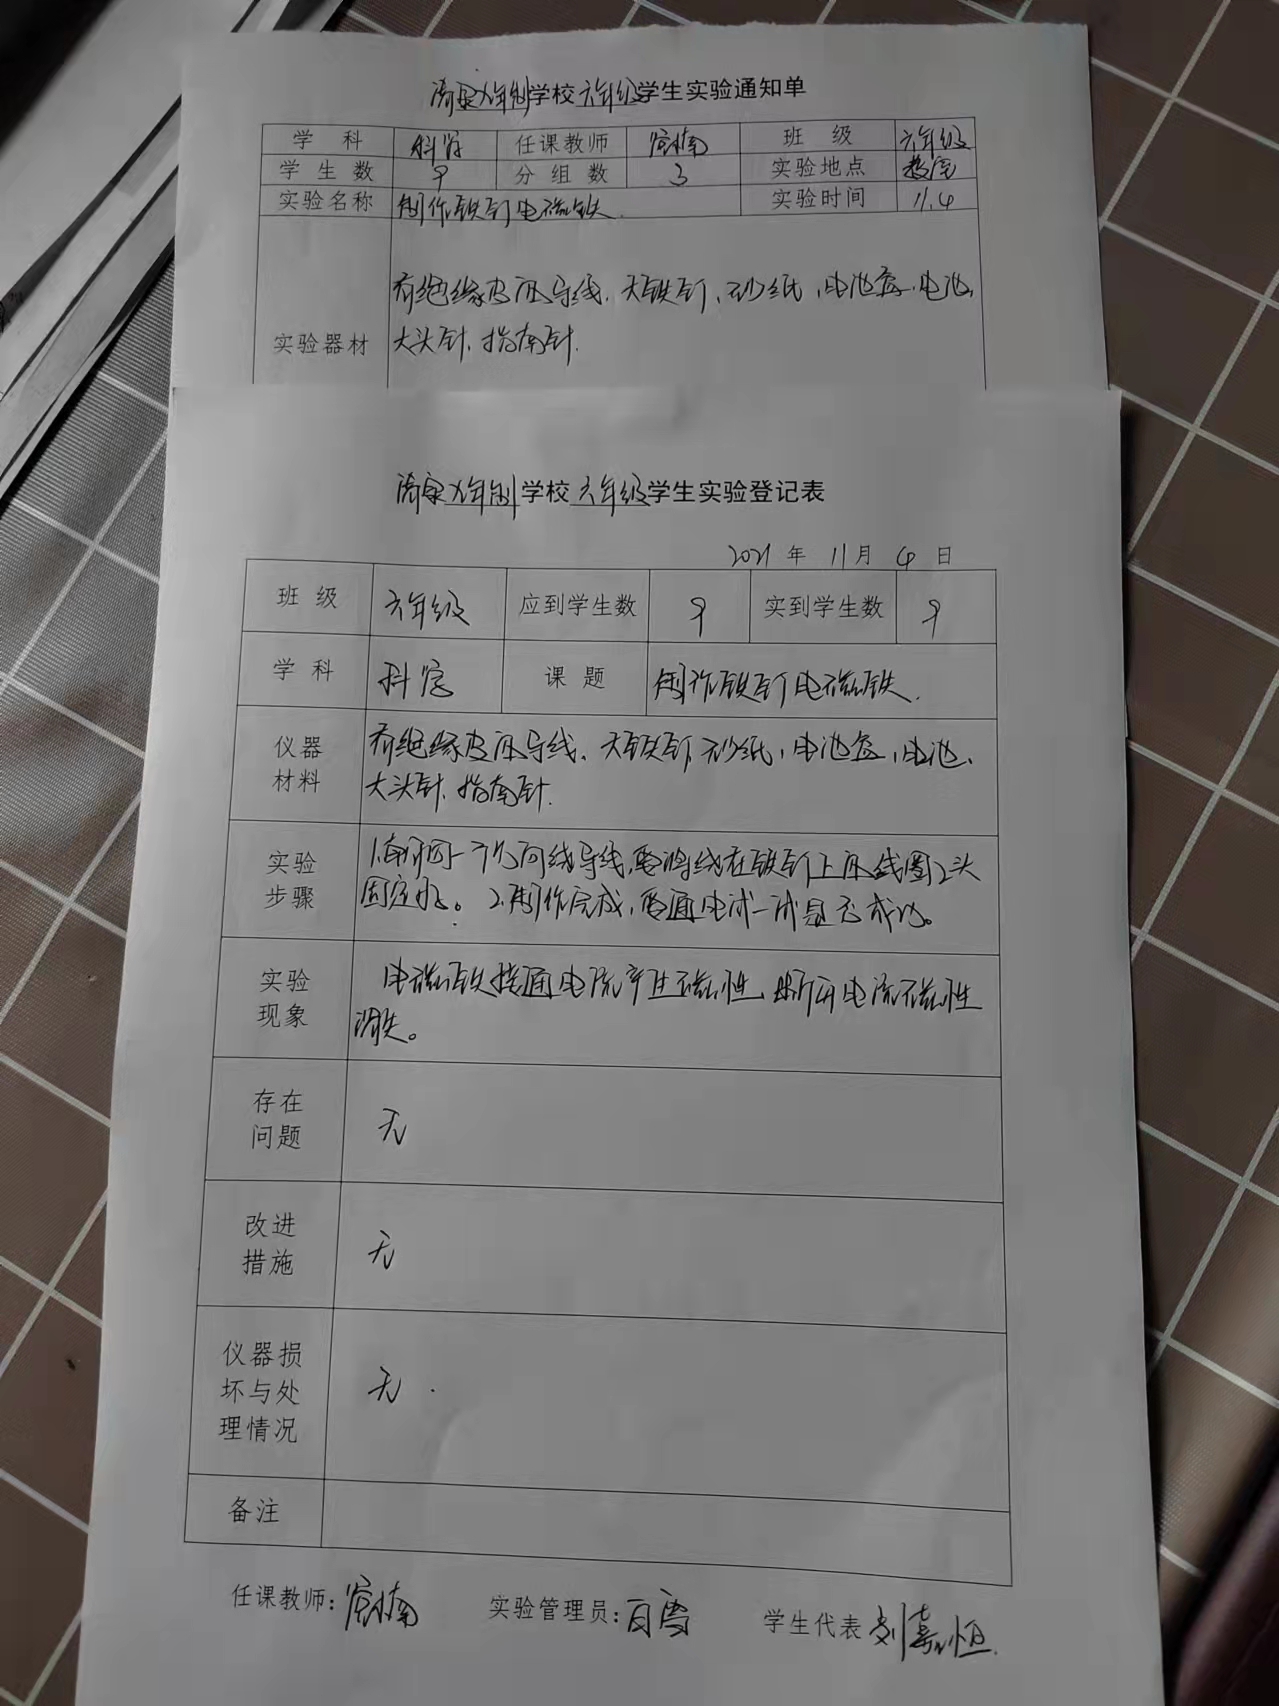 九年制学校六年级学生实验通知单
学 科 科学 任课教师 班 级 六年级
学 生 数 9 分 组 数 3 实验地点 教室
实验名称 制作铁钉电磁铁. 实验时间 11.4
有绝缘皮的导线、大铁钉、砂纸,电池盒、电池,
实验器材 大头针、指南针.
九年制学校六年级学生实验登记表
2021 年 11 月 4 日
班 级 六年级 应到学生数 9 实到学生数 9
学 科 科学 课 题 制作铁钉电磁铁.
仪器 有绝缘皮的导线、大铁钉、砂纸,电池盒,电池、
材料 大头针、指南针.
实验 一个方向 导线, 在铁钉上的线圈2头
步骤 固定好。 2.制作完成,要通电试一试是否成功。
实验 电磁铁接通电流产生磁性,断开电流磁性
现象 消失。
存在
问题 无
改进
措施 无
仪器损
坏与处 无
理情况
备注
任课教师: 实验管理员: 白雪 学生代表 刘嘉恒